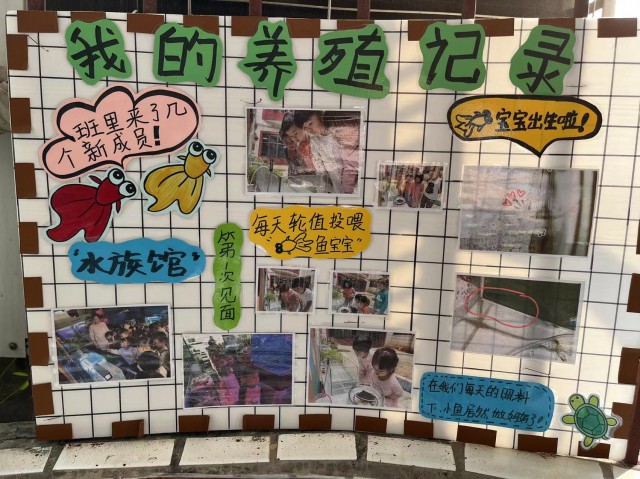 我的养殖记录
班里来了几
个新成员!
宝宝出生啦!
每天轮值投喂
"鱼宝宝"
"水族馆"
第一次见面
在我们每天的照料
下,小鱼居然做妈妈了!